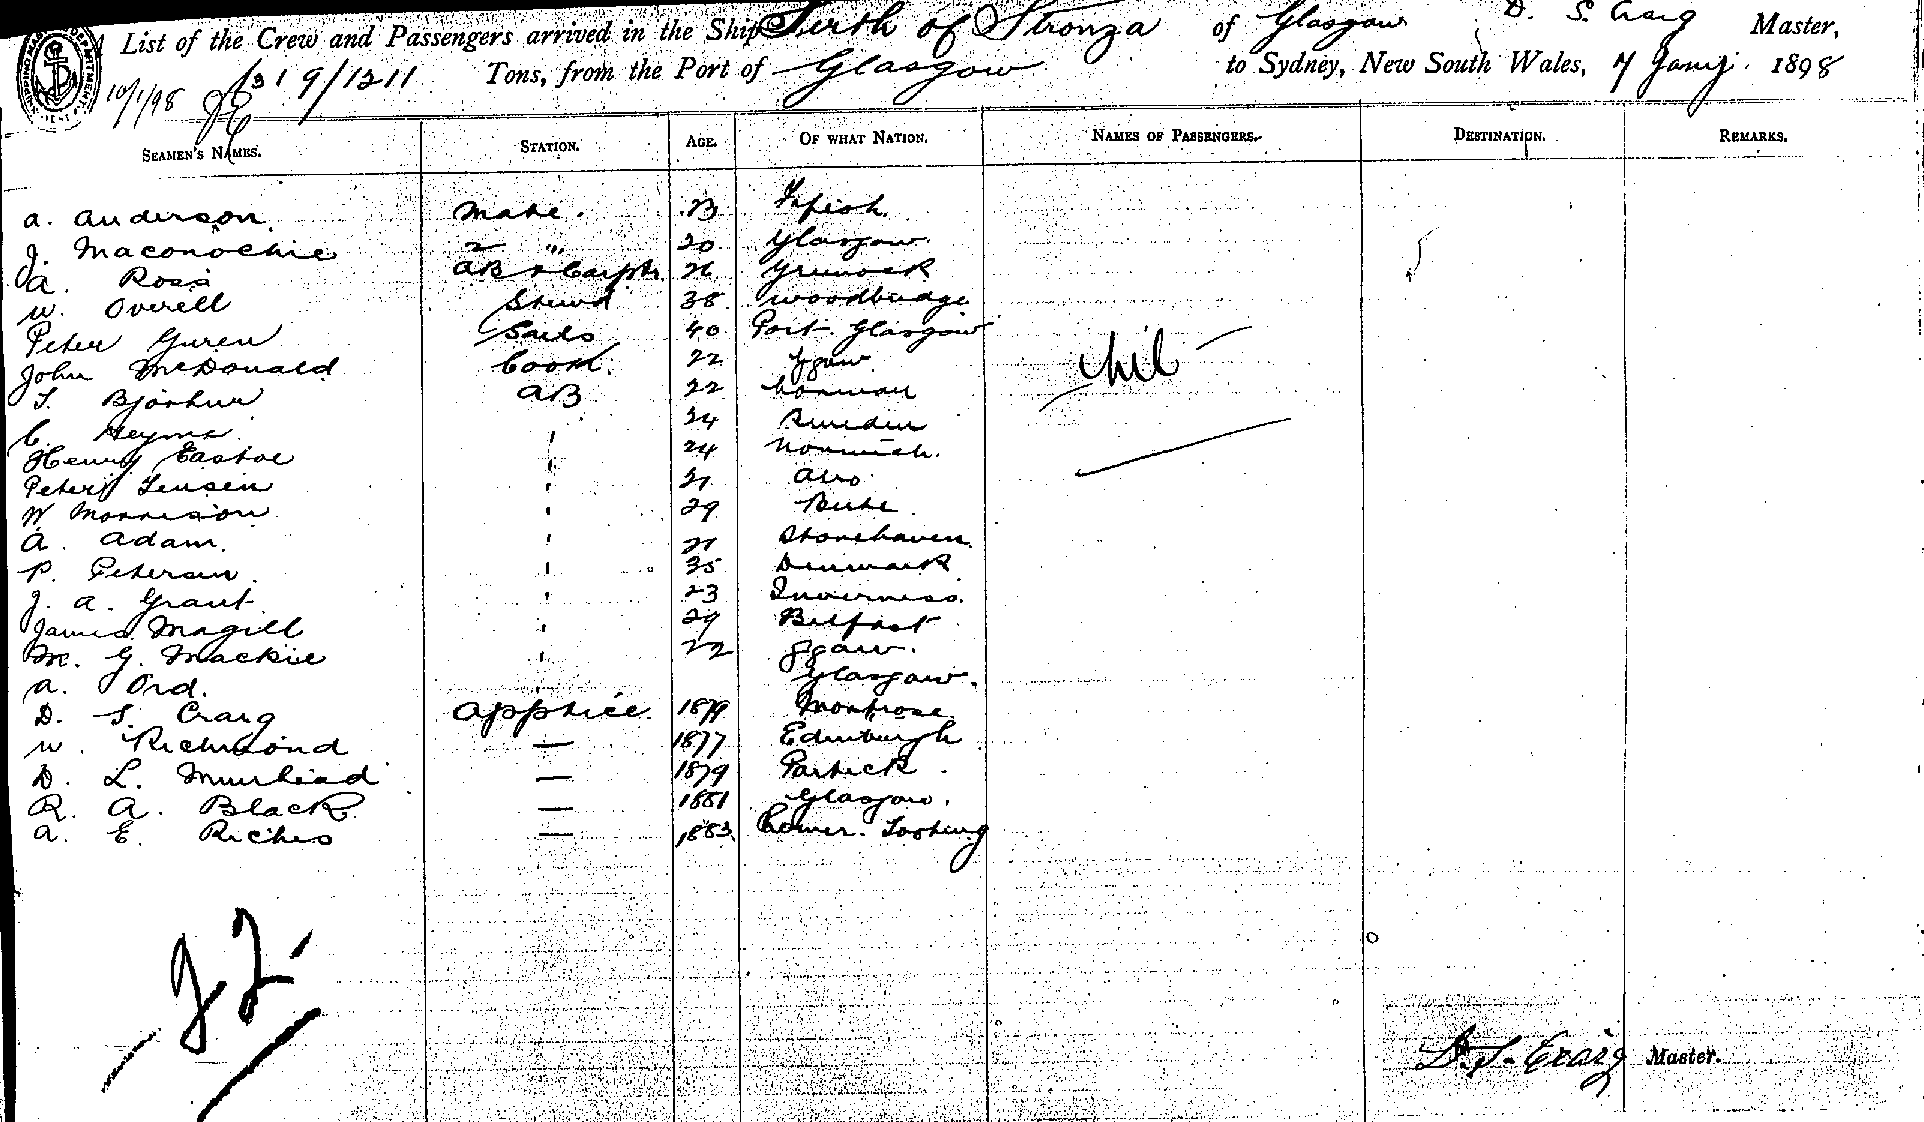 List of the Crew and Passengers arrived in the Ship Firth of Stronza of Glasgow D. S. Craig Master,
10/1/98 1319/1211 Tons, from the Port of Glasgow to Sydney, New South Wales, 7 Jany. 1898
SEAMEN'S NAMES. STATION. AGE. OF WHAT NATION. NAMES OF PASSENGERS. DESTINATION. REMARKS.
A. Anderson Mate.
J. Maconochie 2 " 20 Glasgow
A. Ross AB & Carptr 26 Greenock
W. Overell Stewd 38 Woodbridge
Peter Guren Sails 40 Port Glasgow
John McDonald Cook. 22 Ggow nil
AB 22
C. Heyme 24 Sweden
Henry Eastoe ' 24 Norwich.
Peter Jensen ' 21 Abo
W Morrison ' 29 Bute
A. Adam. ' 21 Stonehaven
P. Petersen. ' 35 Denmark
J. A. Grant ' 23 Inverness.
James Magill ' 29 Belfast
M. G. Mackie ' 22 Ggow.
A. Ord. ' Glasgow.
D. S. Craig Apptice. 1879 Montrose
W. Richmond — 1877 Edinburgh
D. L. Muirhead — 1879 Partick
R. A. Black — 1881 Glasgow.
A. E. Riches — 1883 Lower Tooting
22
D. S. Craig Master.